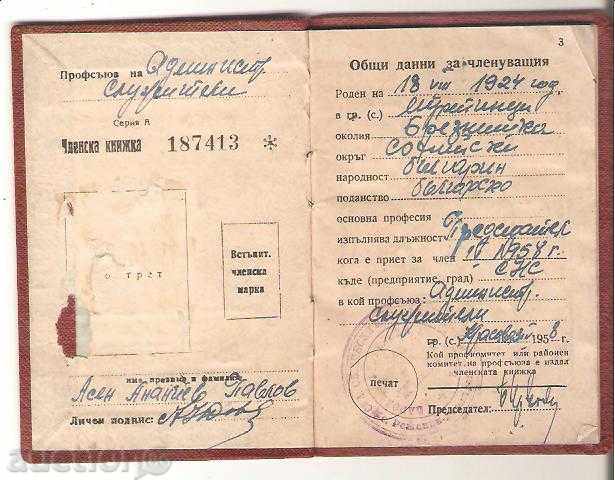 Профсъюз на Админист.
Служители
Серия А
Членска книжка 187413 *
о трет
Встъпит.
членска
марка
име, презиме и фамилия
Асен Ананиев Павлов
Личен подпис:
3
Общи данни за членуващия
Роден на 18 VIII 1924 год
в гр. (с.)
околия Брезнишка
окръг Софийски
народност българин
поданство българско
основна професия
изпълнява длъжност Председател
кога е приет за член IV 1958 г.
къде (предприятие, град) СНС
в кой профсъюз: Админист.
Служители
гр. (с.) 1958 г.
Кой профкомитет или районен
комитет на профсъюза е издал
членската книжка
печат
Председател: